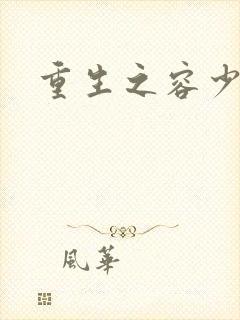 重生之容少
風華